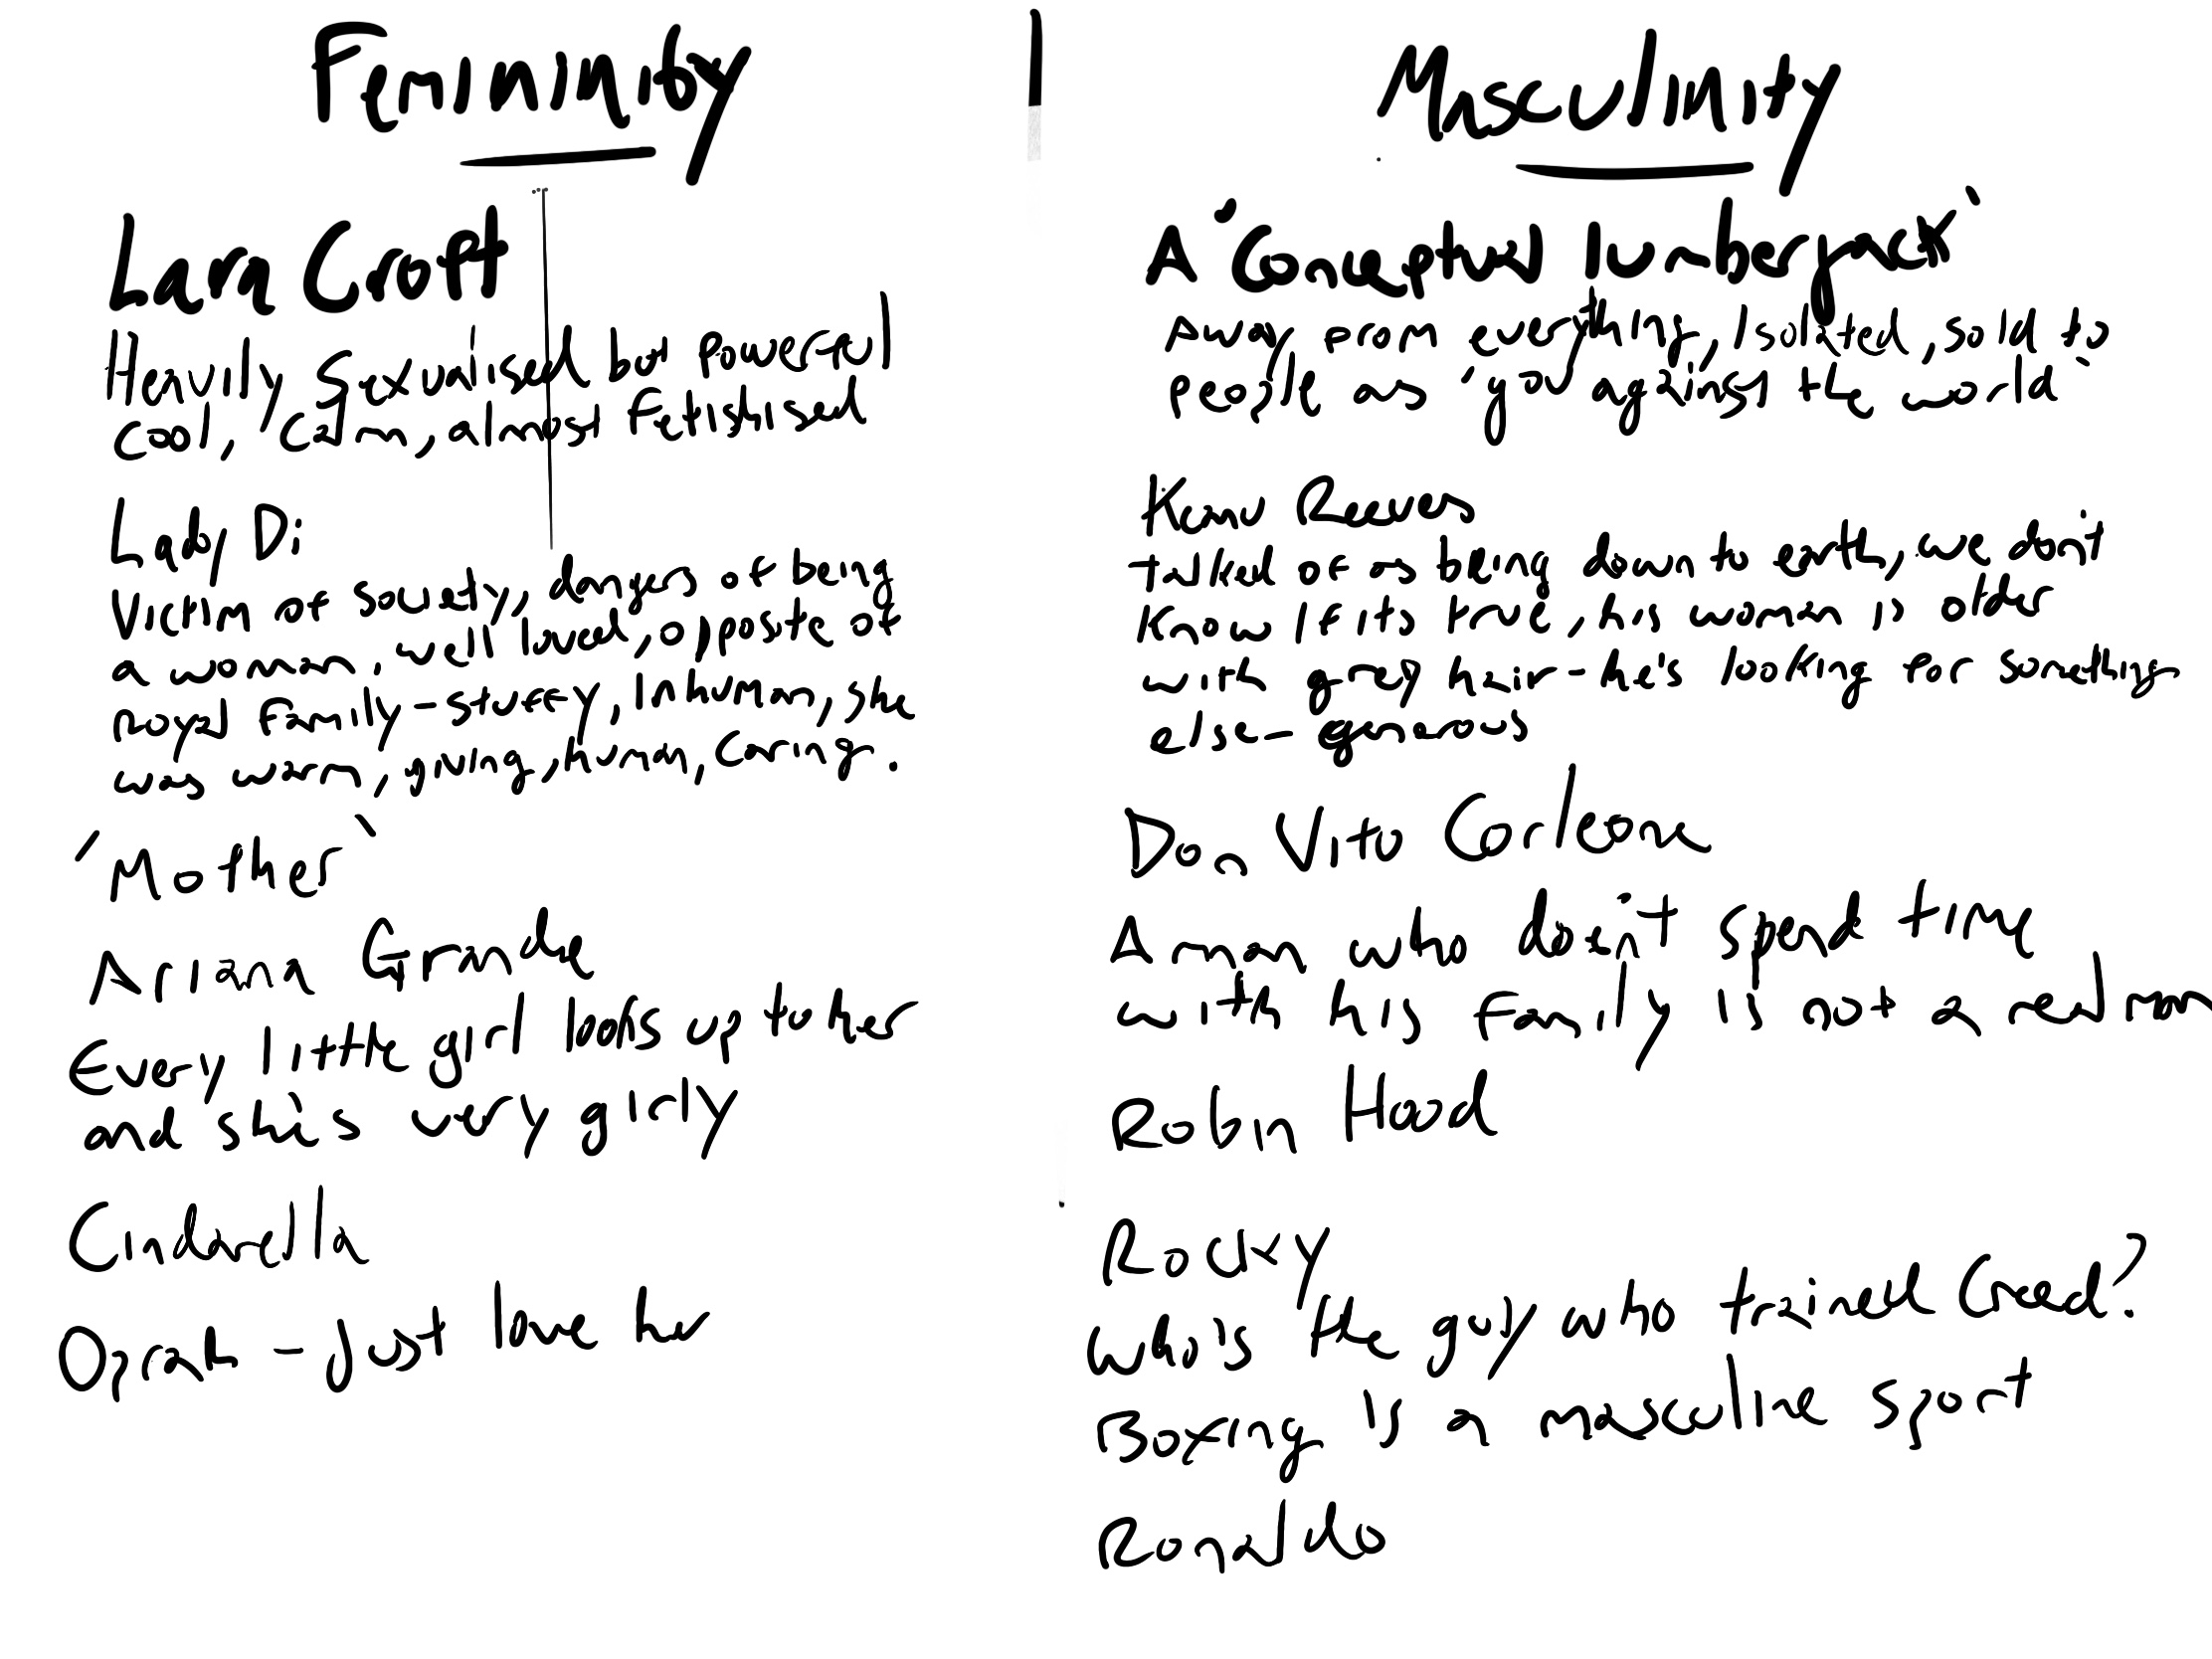 Femininity
Lara Croft
Heavily Sexualised but powerful
cool, calm, almost fetishised
Lady Di
Victim of society, dangers of being
a woman, well loved, opposite of
royal family - stuffy, inhuman, she
was warm, giving, human, caring.
'Mother'
Ariana Grande
Every little girl looks up to her
and she's very girly
Cindarella
Oprah - Just love her
Masculinity
A 'Conceptual lumberjack'
Away from everything, Isolated, sold to
people as 'you against the world'
Keanu Reeves
talked of as being down to earth, we don't
know if its true, his woman is older
with grey hair - he's looking for something
else - generous
Don Vito Corleone
A man who doesn't spend time
with his family is not a real man
Robin Hood
Rocky
Who's the guy who trained Creed?
Boxing is a masculine sport
Ronaldo